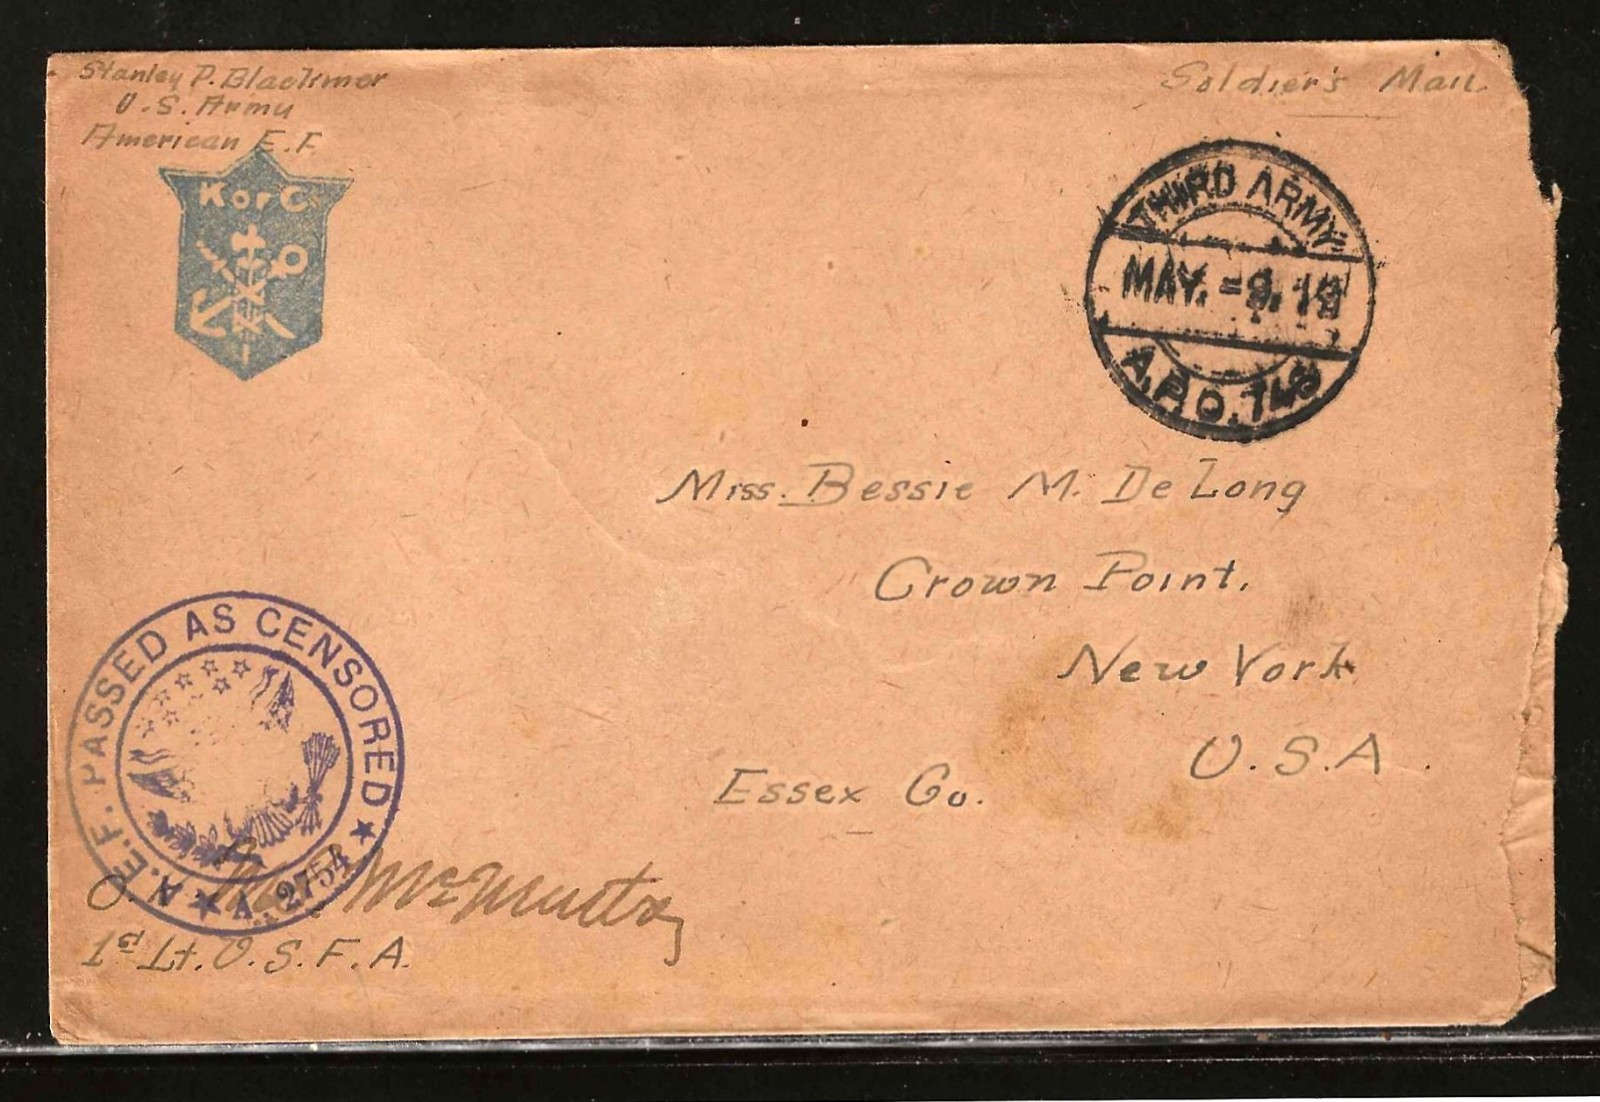 Stanley P. Blackmer
U.S. Army
American E.F.
Soldier's Mail
K of C
THIRD ARMY
MAY. = 9. 19
A.P.O.
Miss. Bessie M. De Long
Crown Point.
New York
U.S.A.
Essex Co.
A.E.F. PASSED AS CENSORED
A. 2754
McMurtry
1st Lt. U.S.F.A.